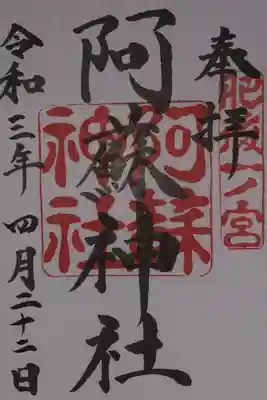 奉拝
肥後一ノ宮
阿蘇神社
阿蘇神社
令和三年 四月二十二日